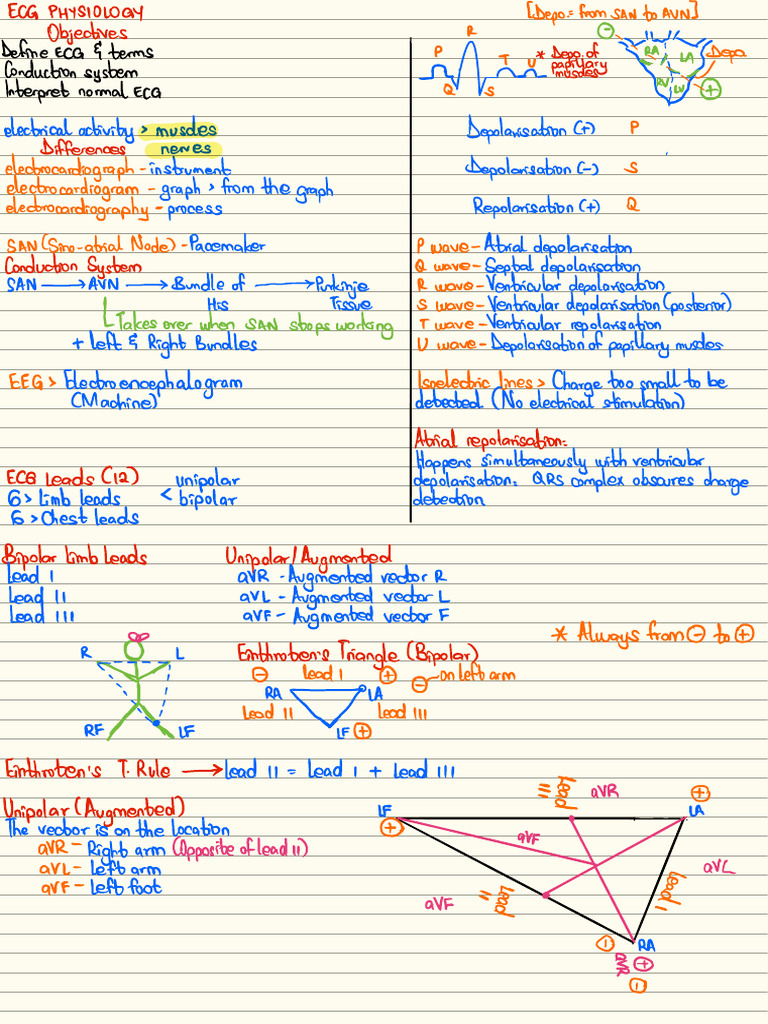 ECG PHYSIOLOGY
Objectives
Define ECG & terms
Conduction system
Interpret normal ECG
electrical activity > muscles
Differences nerves
electrocardiograph - instrument
electrocardiogram - graph > from the graph
electrocardiography - process
SAN (Sino-atrial Node) - Pacemaker
Conduction System
SAN → AVN → Bundle of His → Purkinje Tissue
Takes over when SAN stops working
+ Left & Right Bundles
EEG > Electroencephalogram
(Machine)
ECG Leads (12)
6 > Limb leads < unipolar
bipolar
6 > Chest leads
[Depo. = from SAN to AVN]
P Q R S T U
* Depo. of
papillary
muscles
- RA LA Depo.
RV LV +
Depolarisation (+) P
Depolarisation (-) S
Repolarisation (+) Q
P wave - Atrial depolarisation
Q wave - Septal depolarisation
R wave - Ventricular depolarisation
S wave - Ventricular depolarisation (posterior)
T wave - Ventricular repolarisation
U wave - Depolarisation of papillary muscles
Isoelectric lines > Charge too small to be
detected. (No electrical stimulation)
Atrial repolarisation:
Happens simultaneously with ventricular
depolarisation: QRS complex obscures charge
detection
Bipolar Limb Leads
Lead I
Lead II
Lead III
Unipolar/Augmented
aVR - Augmented vector R
aVL - Augmented vector L
aVF - Augmented vector F
* Always from - to +
R L
RF LF
Einthroben's Triangle (Bipolar)
- Lead I +
- on left arm
RA LA
Lead II Lead III
LF +
Einthroben's T. Rule → Lead II = Lead I + Lead III
Unipolar (Augmented)
The vector is on the location
aVR - Right arm (Opposite of lead II)
aVL - Left arm
aVF - Left foot
LF +
Lead III
aVR
LA +
aVF
aVL
Lead I
Lead II
aVF
- RA
aVR +
-